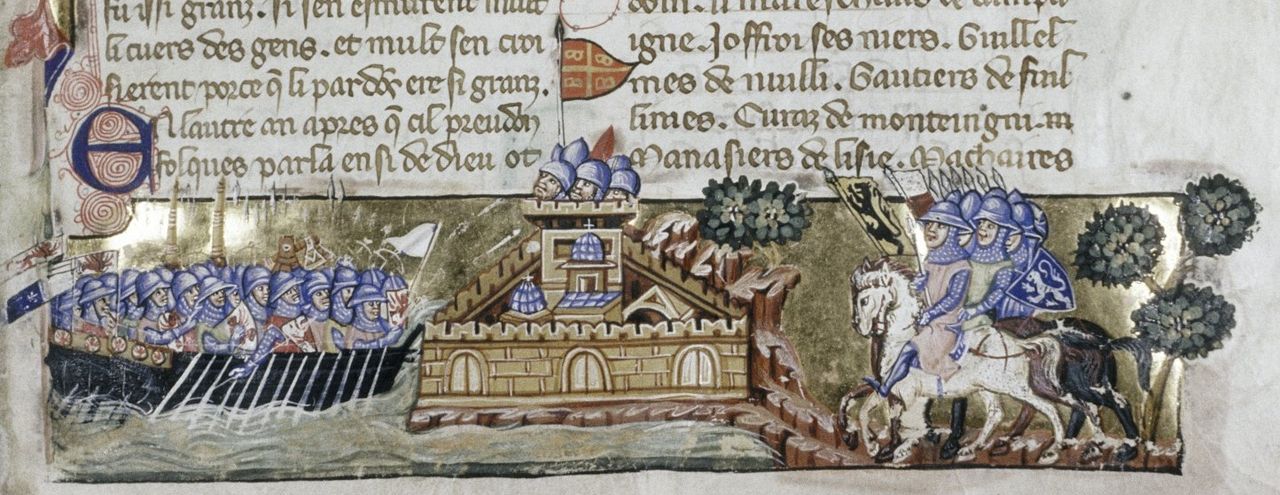 fu issi granz. si sen esmurent mult
li cuers des gens. et mult sen croi
sierent porce q̃ li pardõs ere si granz.
En lautre an apres q̃ cil preudon
folques parla ensi de dieu ot
doin. li mareschaus de campa
igne. Joffroi ses niers. Guillel
mes de nuilli. Gautiers de fuil
lines. Euraz de monteingni. m
Manasiers de lisie. Machaires